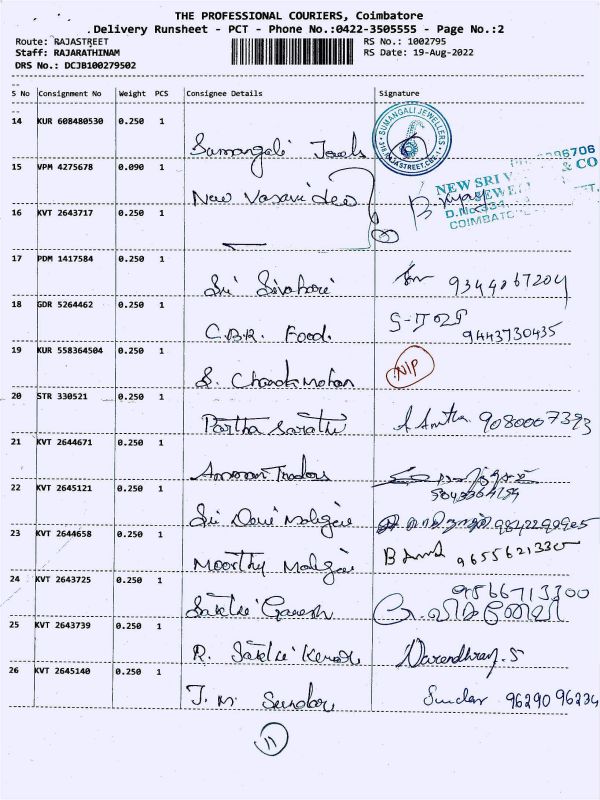 THE PROFESSIONAL COURIERS, Coimbatore
Delivery Runsheet - PCT - Phone No.:0422-3505555 - Page No.:2
Route: RAJASTREET RS No.: 1002795
Staff: RAJARATHINAM RS Date: 19-Aug-2022
DRS No.: DCJB100279502
S No Consignment No Weight PCS Consignee Details Signature
14 KUR 608480530 0.250 1
Sumangali Jewels
SUMANGALI JEWELLERS
15 VPM 4275678 0.090 1
New Vasavi
NEW SRI & CO
COIMBATO
16 KVT 2643717 0.250 1
17 PDM 1417584 0.250 1
Sri Sivahari
18 GDR 5264462 0.250 1
C.B.R. Food. 9443730435
19 KUR 558364504 0.250 1
S. Chandramohan NIP
20 STR 330521 0.250 1
Partha Sarathi 9080007393
21 KVT 2644671 0.250 1
Amman Traders
22 KVT 2645121 0.250 1
Sri Devi Maligai
23 KVT 2644658 0.250 1
Moorthy Maligai 9655621330
24 KVT 2643725 0.250 1
9566713300
Sakthi Ganesh
25 KVT 2643739 0.250 1
R. Sakthi Kumar Narendhran.S
26 KVT 2645140 0.250 1
T.M. Sundar Sundar 9629096234
11